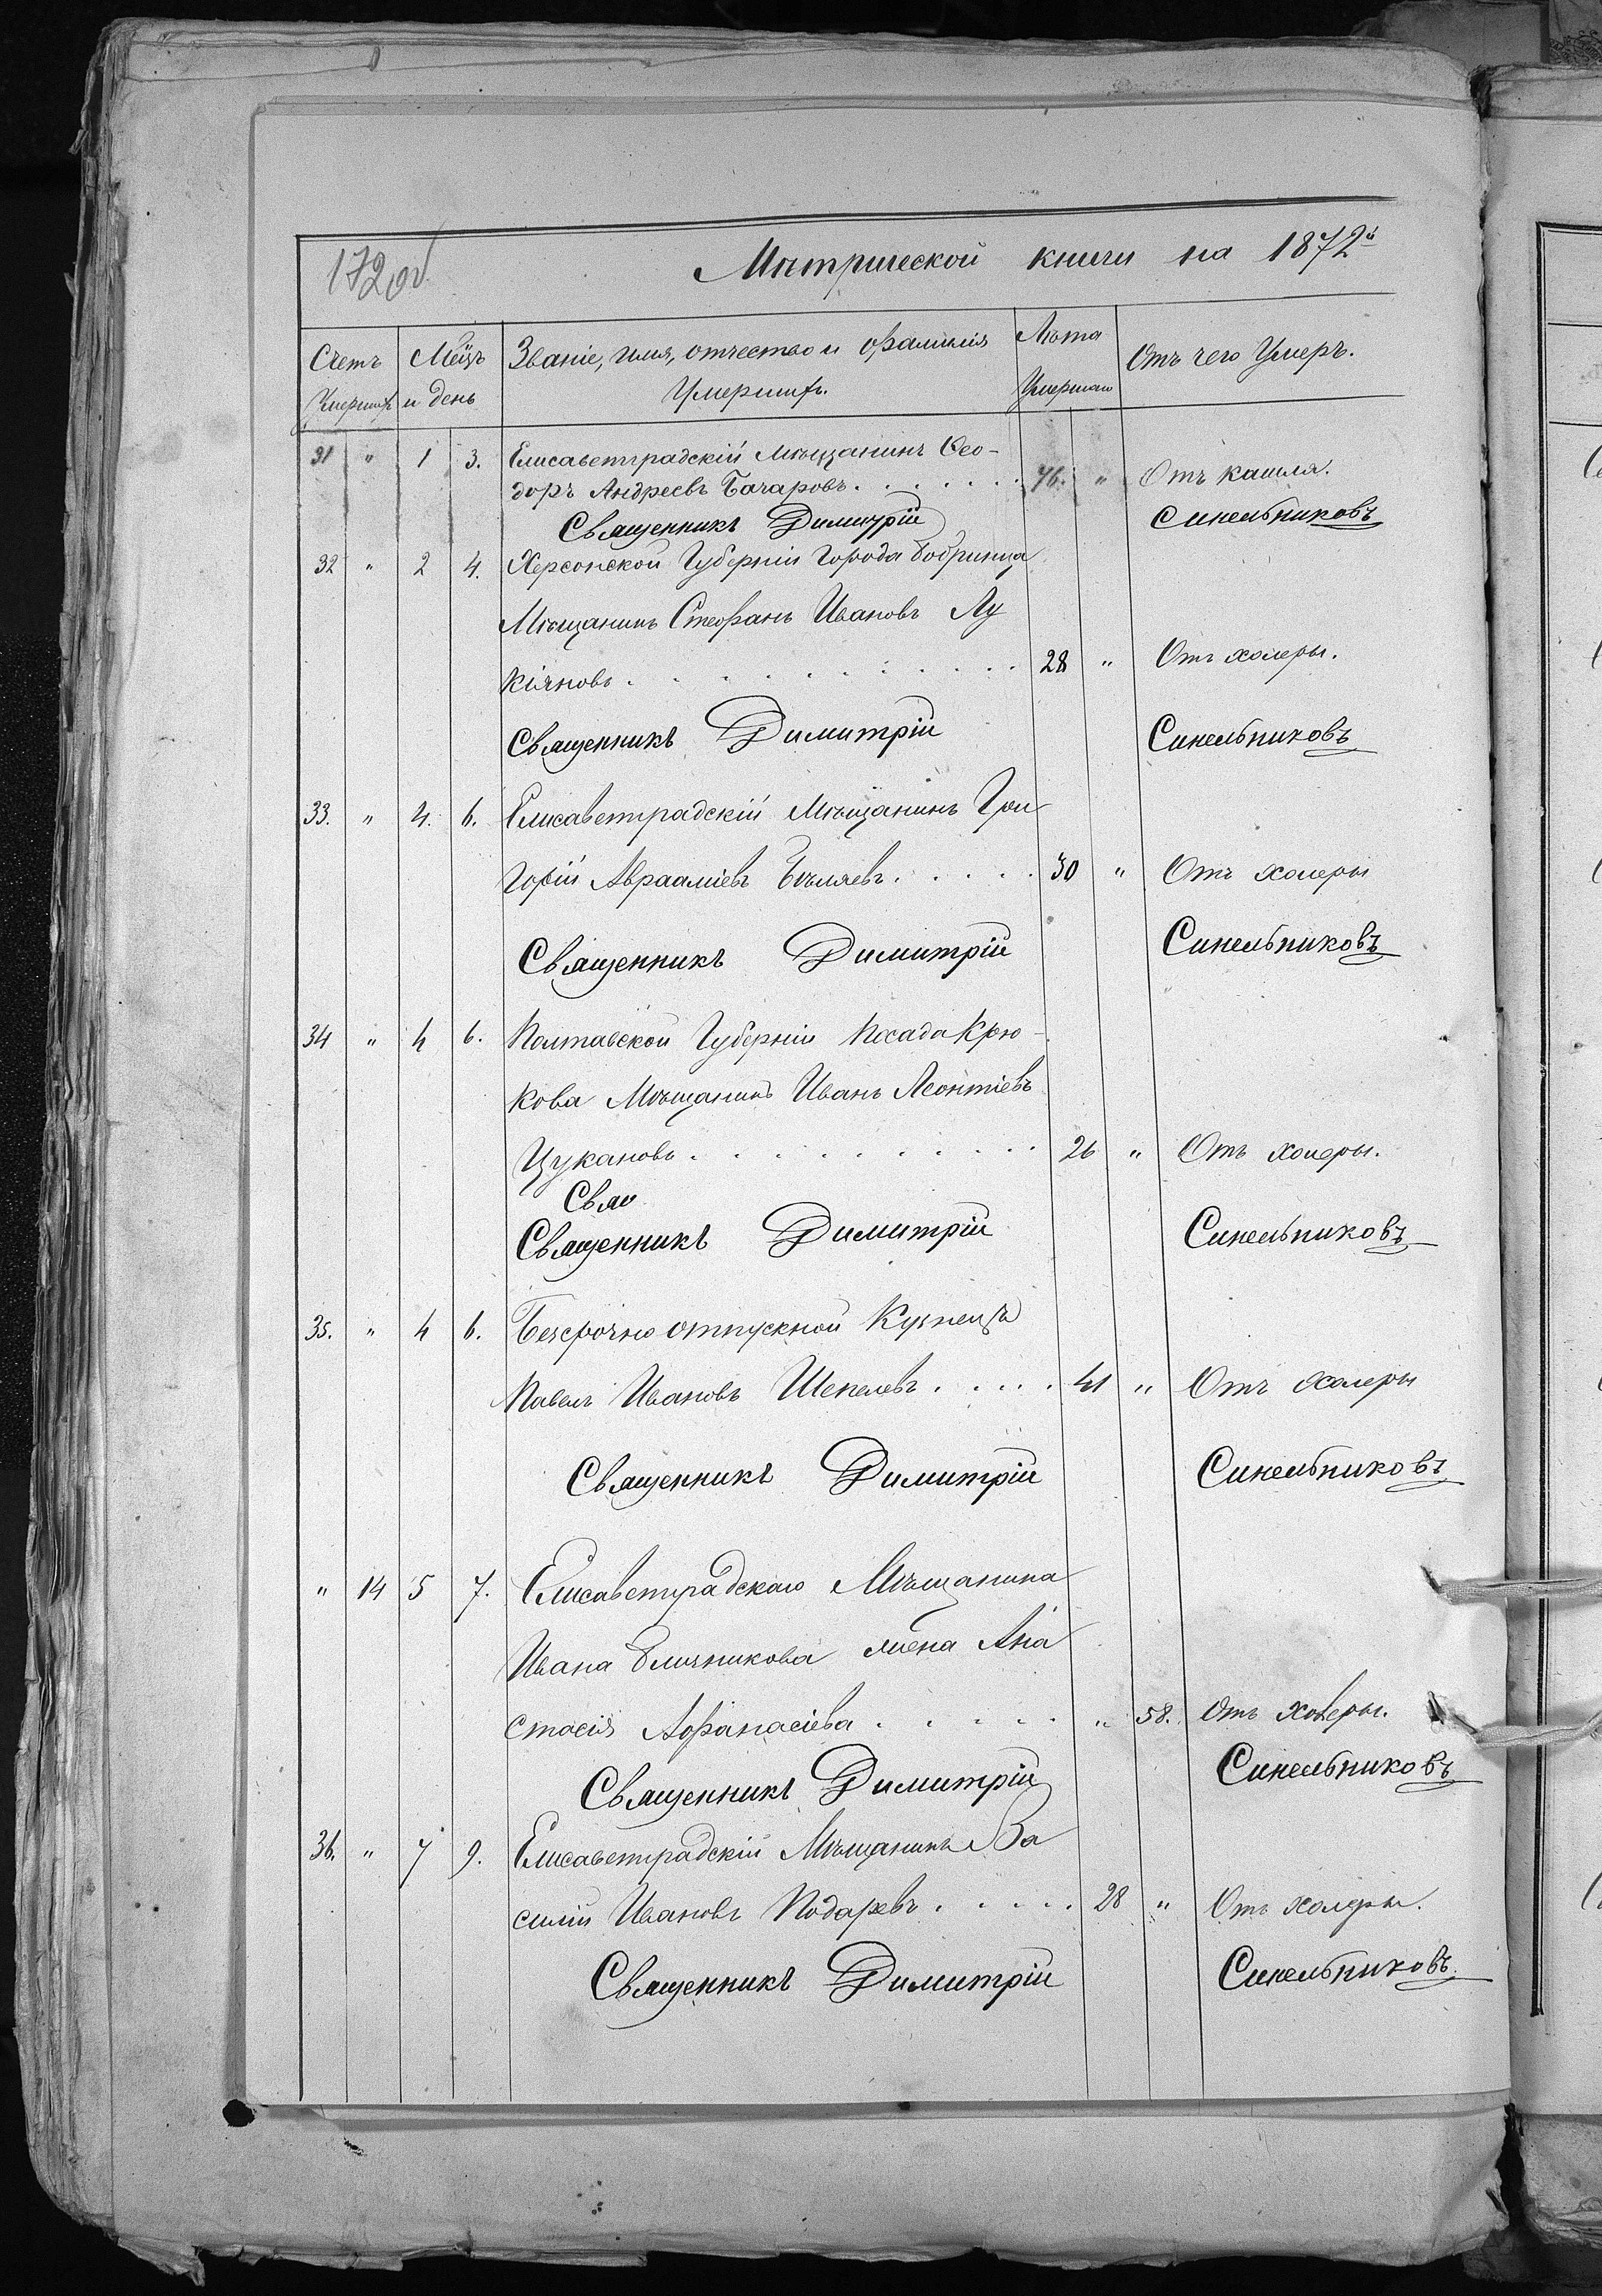 172 об
Метрической книги на 1872й
Счетъ Мѣцъ Званіе, имя, отчество и фамилія Лѣта Отъ чего Умеръ.
Умершихъ и день Умершихъ. Умершаго
31 " 1 3. Елисаветградскій Мѣщанинъ Ѳео-
доръ Андреевъ Бочаровъ. . . . . . . 76. " Отъ кашля.
Священникъ Димитрій Синельниковъ
32 " 2 4. Херсонской Губерніи Города Бобринца
Мѣщанинъ Стефанъ Ивановъ Лу
кіяновъ . . . . . . . . . . 28 " Отъ холеры.
Священникъ Димитрій Синельниковъ
33. " 4. 6. Елисаветградскій Мѣщанинъ Гри
горій Авраамiевъ Бѣляевъ. . . . . . 30 " Отъ холеры
Священникъ Димитрій Синельниковъ
34 " 4 6. Полтавской Губерніи Посада Крю-
кова Мѣщанинъ Иванъ Леонтіевъ
Цукановъ . . . . . . . . . . 26 " Отъ холеры.
Свяо
Священникъ Димитрій Синельниковъ
35. " 4 6. Безсрочно отпускной Кузнецъ
Павелъ Ивановъ Шепелевъ. . . . . 41 " Отъ холеры
Священникъ Димитрій Синельниковъ
" 14 5 7. Елисаветградскаго Мѣщанина
Ивана жена Ана
стасія Афанасіева . . . . . " 58. Отъ холеры.
Священникъ Димитрій Синельниковъ
36. " 7 9. Елисаветградскій Мѣщанинъ Ва
силій Ивановъ . . . . . 28 " Отъ холеры.
Священникъ Димитрій Синельниковъ